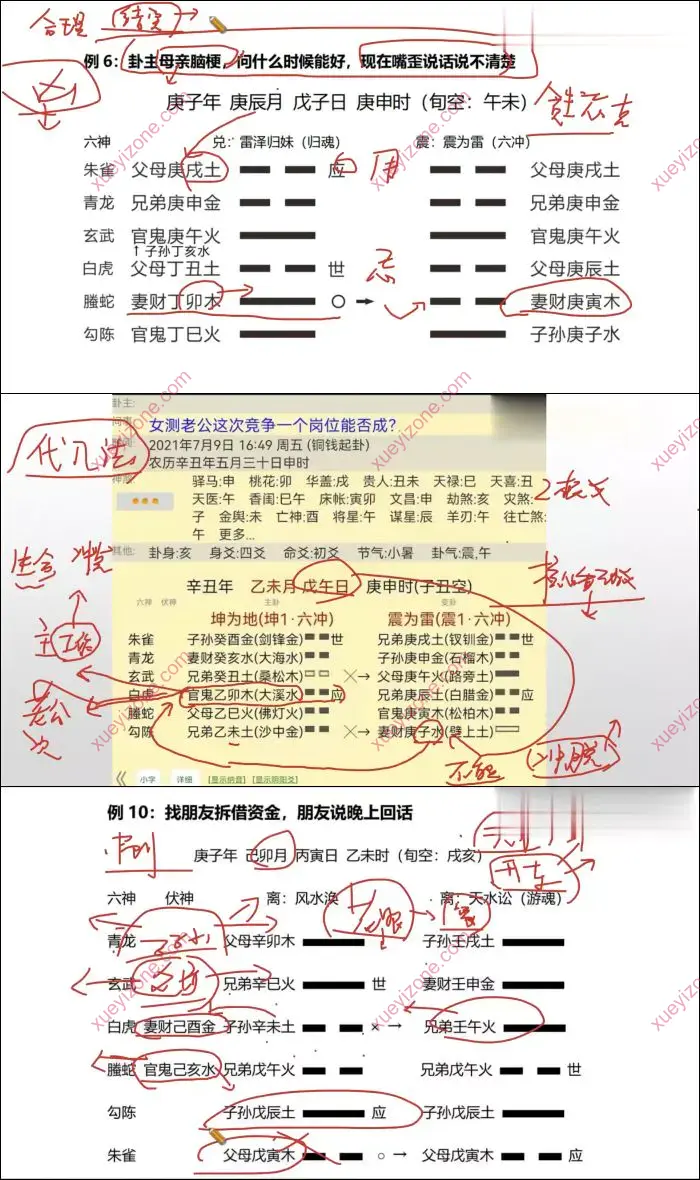 合理
例 6：卦主母亲脑梗，问什么时候能好，现在嘴歪说话说不清楚
凶
庚子年 庚辰月 戊子日 庚申时（旬空：午未）
六神 兑：雷泽归妹（归魂） 震：震为雷（六冲）
朱雀 父母庚戌土 应 用 父母庚戌土
青龙 兄弟庚申金 兄弟庚申金
玄武 官鬼庚午火 官鬼庚午火
↑子孙丁亥水
白虎 父母丁丑土 世 忌 父母庚辰土
螣蛇 妻财丁卯木 ○→ 妻财庚寅木
勾陈 官鬼丁巳火 子孙庚子水
卦主:
女测老公这次竞争一个岗位能否成？
2021年7月9日 16:49 周五 (铜钱起卦)
农历辛丑年五月三十日申时
驿马:申 桃花:卯 华盖:戌 贵人:丑未 天禄:巳 天喜:丑
天医:午 香闺:巳午 床帐:寅卯 文昌:申 劫煞:亥 灾煞:
子 金舆:未 亡神:酉 将星:午 谋星:辰 羊刃:午 往亡煞:
午 更多...
其他: 卦身:亥 身爻:四爻 命爻:初爻 节气:小暑 卦气:震,午
辛丑年 乙未月 戊午日 庚申时(子丑空)
六神 伏神 主卦 变卦
坤为地(坤1·六冲) 震为雷(震1·六冲)
朱雀 子孙癸酉金(剑锋金) 世 兄弟庚戌土(钗钏金) 世
青龙 妻财癸亥水(大海水) 子孙庚申金(石榴木)
玄武 兄弟癸丑土(桑松木) ╳→ 父母庚午火(路旁土)
白虎 官鬼乙卯木(大溪水) 应 兄弟庚辰土(白腊金) 应
螣蛇 父母乙巳火(佛灯火) 官鬼庚寅木(松柏木)
勾陈 兄弟乙未土(沙中金) ╳→ 妻财庚子水(壁上土)
老公
不能
小字 详细 [显示纳音] [显示阴阳爻]
例 10：找朋友拆借资金，朋友说晚上回话
庚子年 己卯月 丙寅日 乙未时（旬空：戌亥）
开车
六神 伏神 离：风水涣 离：天水讼（游魂）
青龙 父母辛卯木 子孙壬戌土
玄武 兄弟辛巳火 世 妻财壬申金
白虎 妻财己酉金 子孙辛未土 × → 兄弟壬午火
螣蛇 官鬼己亥水 兄弟戊午火 兄弟戊午火 世
勾陈 子孙戊辰土 应 子孙戊辰土
朱雀 父母戊寅木 ○ → 父母戊寅木 应
xueyizone.com